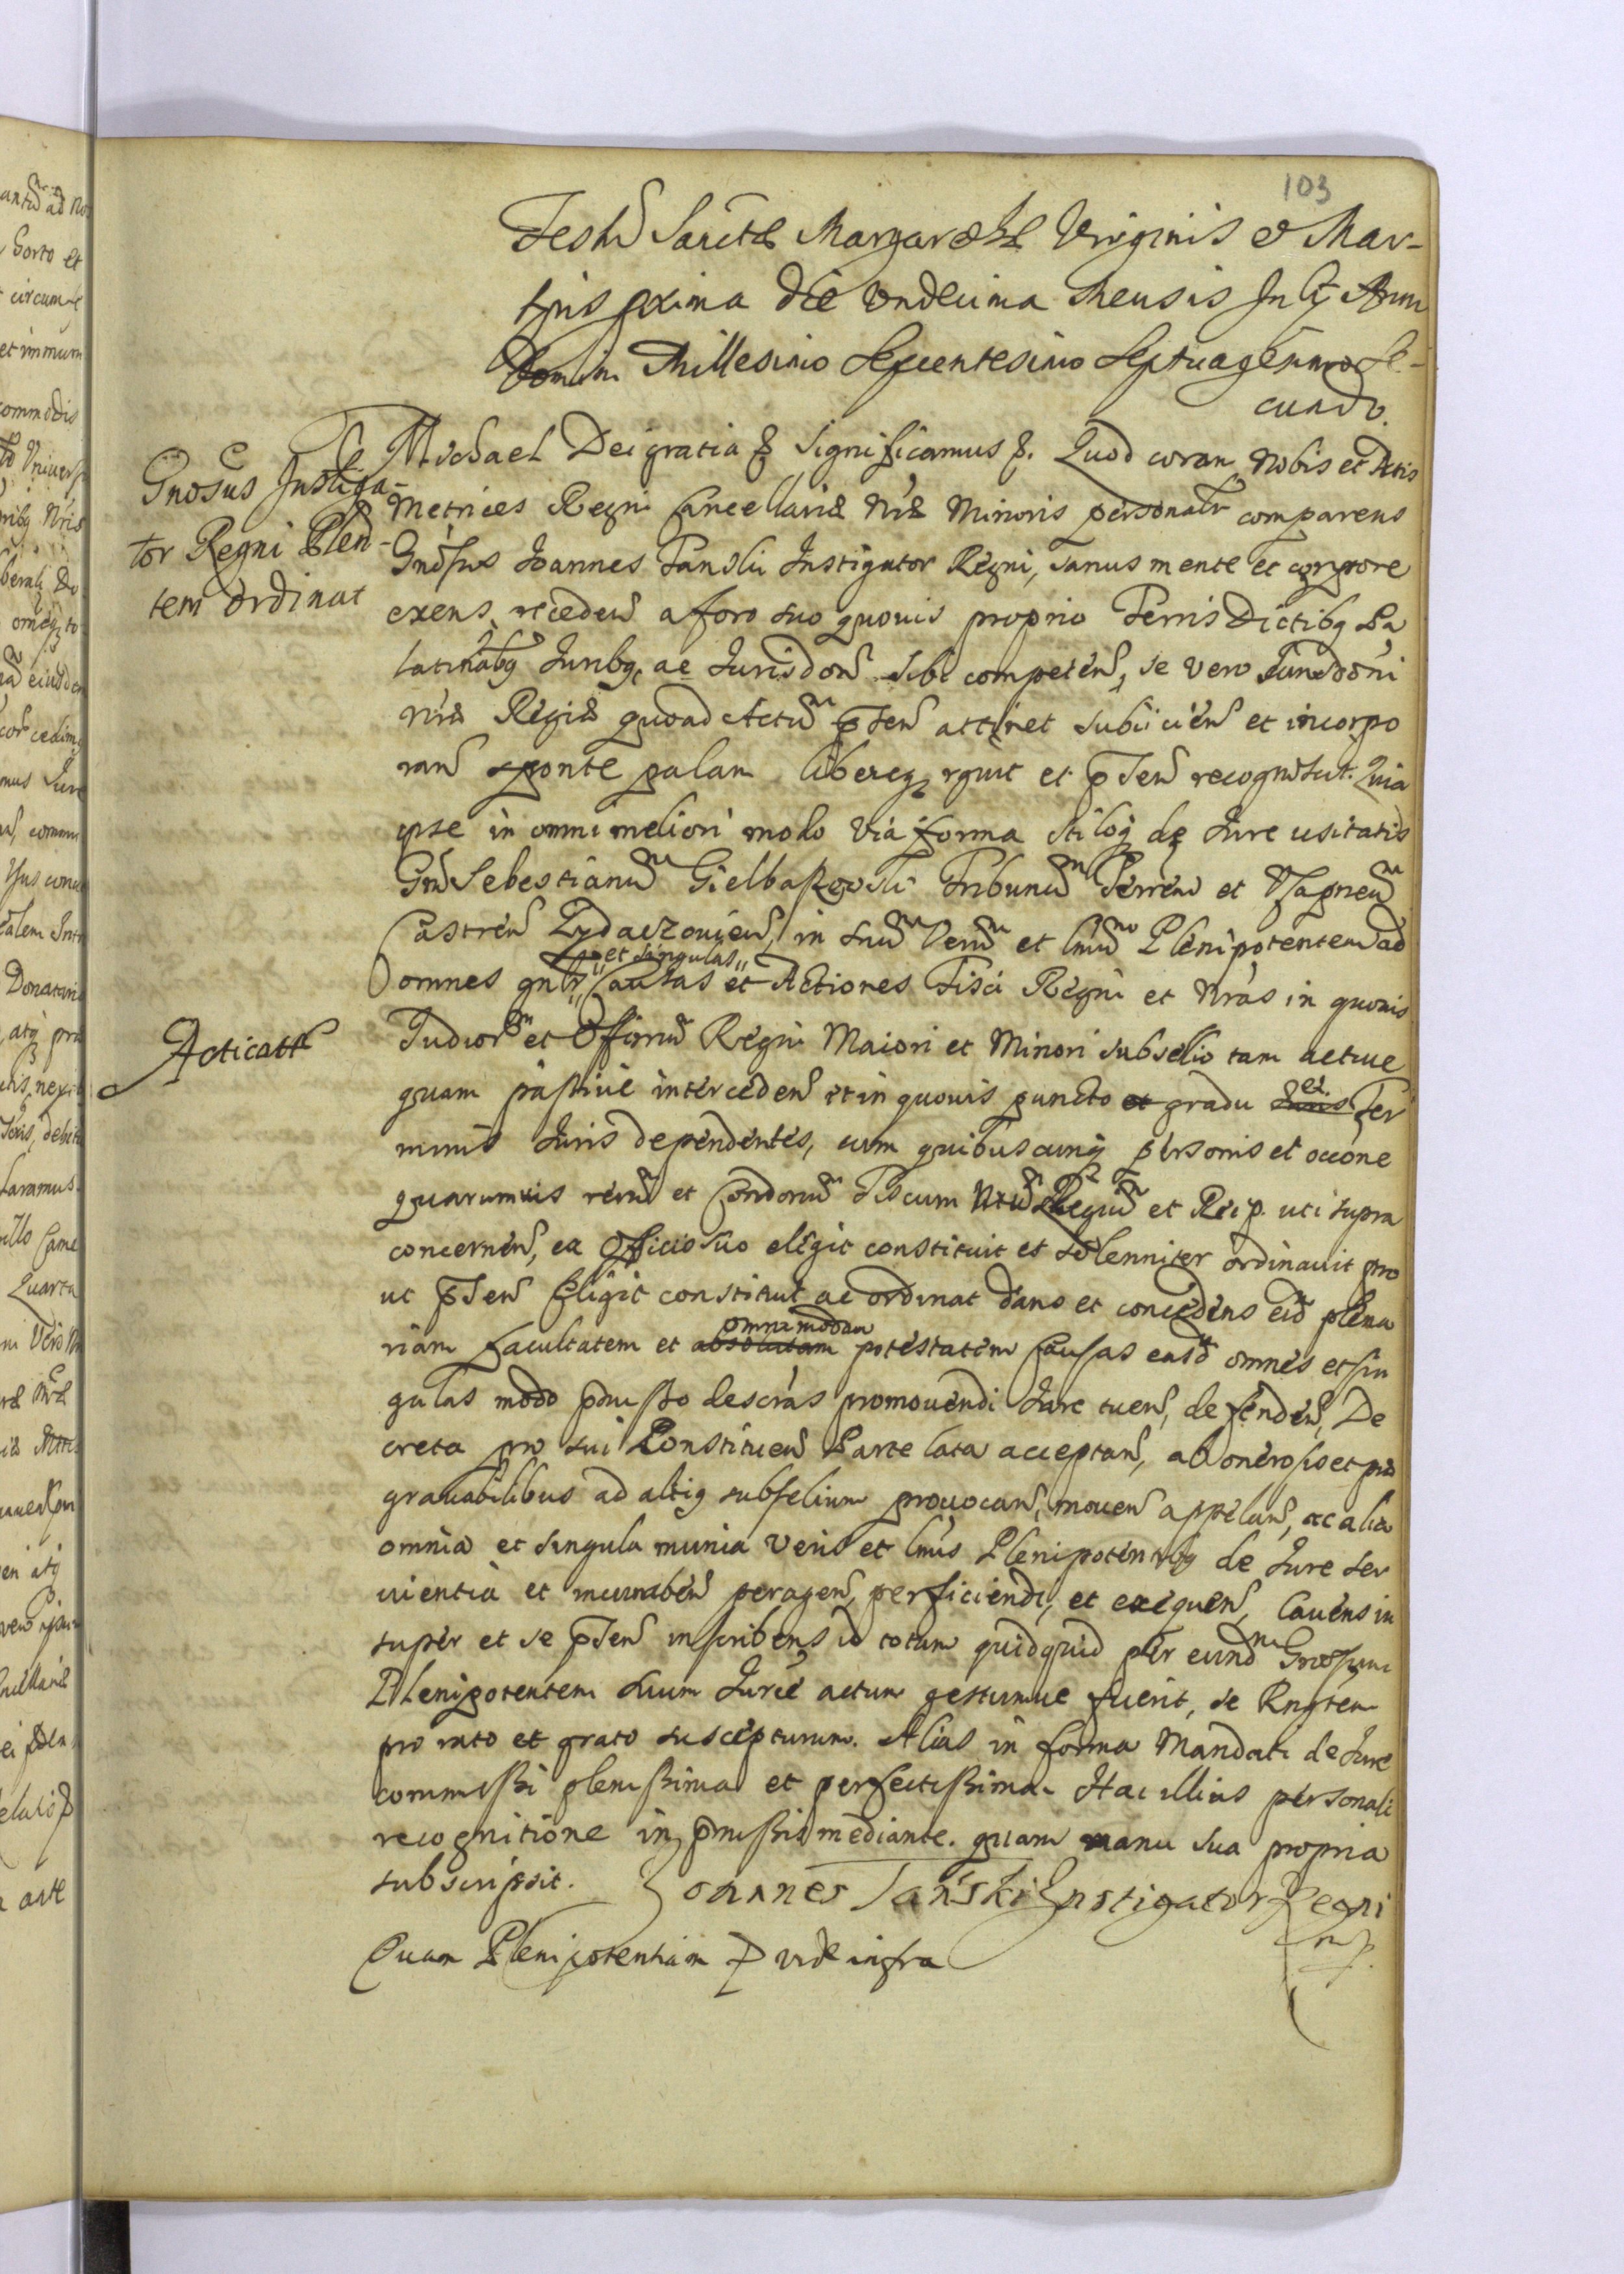 103
Festu Sanctæ Margarethæ Virginis et Mar-
tyris proxima die Vndecima Mensis July Anno
Domini Millesimo Sexcentesimo Septuagesimo Se-
cundo.
Gnosus Instiga-
tor Regni Plen-
tem ordinat
Michael Dei gratia & significamus &. Quod coram Nobis et Actis
Metrices Regni Cancellariæ Nræ Minoris personalr comparens
Gnosus Joannes Tanski Instigator Regni, sanus mente et corpore
exens, recedens a foro suo quouis proprio Terris Dictibq Pa
latinatibq Juribq, ac Jurisdoni sibi competen, se vero Jurisdoni
nræ Regiæ quoad Actum pnsen attinet subiicien et incorpo
ran sponte palam libereq rguit et pnsen recognoscit. Quia
ipse in omni meliori modo via forma stiloq de Jure usitatis
Gnm Sebestianum Gielbaszowski Tribunum Terren et Vagneum
Castren Zydaczouien, in suum verum et lmum Plenipotentem ad
et singulas
omnes gnlr Causas et Actiones Fisci Regni et Nras in quouis
Acticatt
Judior et Officiorum Regni Maiori et Minori subselio tam actiue
quam passiue interceden et in quouis puncto et gradu Juris et Ter
minis Juris dependentes, cum quibuscunq personis et occone
quarumuis rerum et Condonum Fiscum Nrum Regium et Reip. uti supra
concernen, ex Officio suo elegit constituit et solenniter ordinauit pro
ut pnsen eligit constituit ac ordinat dans et concedens eid plena
omnimodam
riam facultatem et absolutam potestatem Causas easd omnes et sin
gulas modo pmisso descras promouendi Jure tuen, defenden, De
creta pro sui Constituen Parte lata acceptan, ab onerosis et præ
grauabilibus ad altiq subselium prouocan, mouen appelan, ac alia
omnia et singula munia veris et lmis Plenipotentibq de Jure ser
uientia et incumben peragen, perficiendi, et exequen, Cauens in
super et se pnsen inscribens id totum quidquid per eund Gnosum
Plenipotentem suum Jure actum gestumue fuerit, se Rngtem
pro rato et grato suscepturum. Alias in forma Mandati de Jure
commissi plenissima et perfectissima. Hac illius personali
recognitione in pmissis mediante. quam manu sua propria
subscripsit. Johannes Tański Instigator Regni
mp.
Quam Plenipotentiam & vide infra